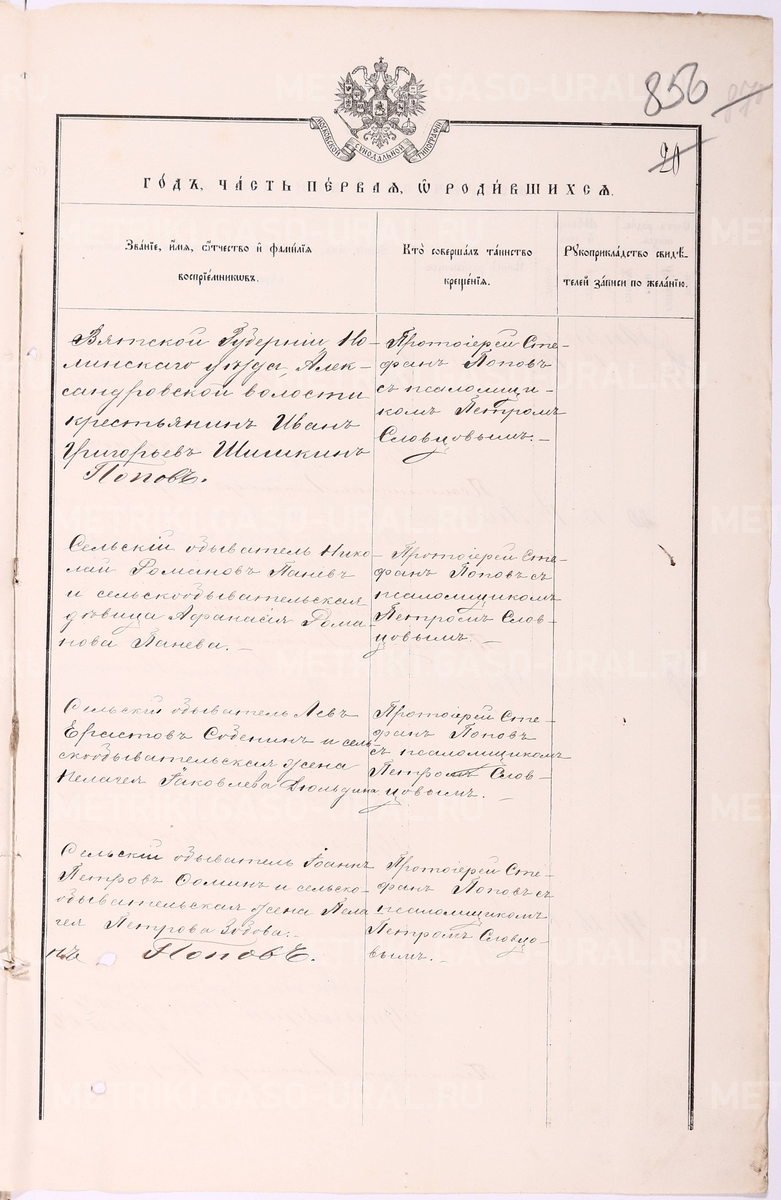 856
20
МОСКОВСКОЙ СѴНОДАЛЬНОЙ ТИПОГРАФІИ
ГО́ДЪ, ЧА́СТЬ ПЕ́РВАЯ, Ѡ҆ РОДИ́ВШИХСЯ.
Зва́нїе, и҆́мя, ѻ҆́тчество и҆ фами́лїя
воспрїе́мникѡвъ.
Кто̀ соверша́лъ та́инство
креще́нїя.
Рꙋкоприкла́дство свидѣ́-
телей за́писи по жела́нїю.
Вятской Губерніи Но-
линскаго уѣзда, Алек-
сандровской волости
крестьянинъ Иванъ
Григорьевъ Шишкинъ
Поповъ.
Протоіерей Сте-
фанъ Поповъ
съ псаломщи-
комъ Петромъ
Словцовымъ. –
Сельскій обыватель Нико-
лай Романовъ Паневъ
и сельскообывательская
дѣвица Афанасія Рома-
нова Панева. –
Протоіерей Сте-
фанъ Поповъ съ
псаломщикомъ
Петромъ Слов-
цовымъ. –
Сельскій обыватель Левъ
Ерастовъ Собенинъ и сель-
скообывательская жена
Пелагея Іаковлева
Протоіерей Сте-
фанъ Поповъ
съ псаломщикомъ
Петромъ Слов-
цовымъ. –
Сельскій обыватель Іоаннъ
Петровъ Соминъ и сельско-
обывательская жена Пела
гея Петрова Зобова. –
Поповъ.
Протоіерей Сте-
фанъ Поповъ съ
псаломщикомъ
Петромъ Словцо-
вымъ. –
METRIKI.GASO-URAL.RU